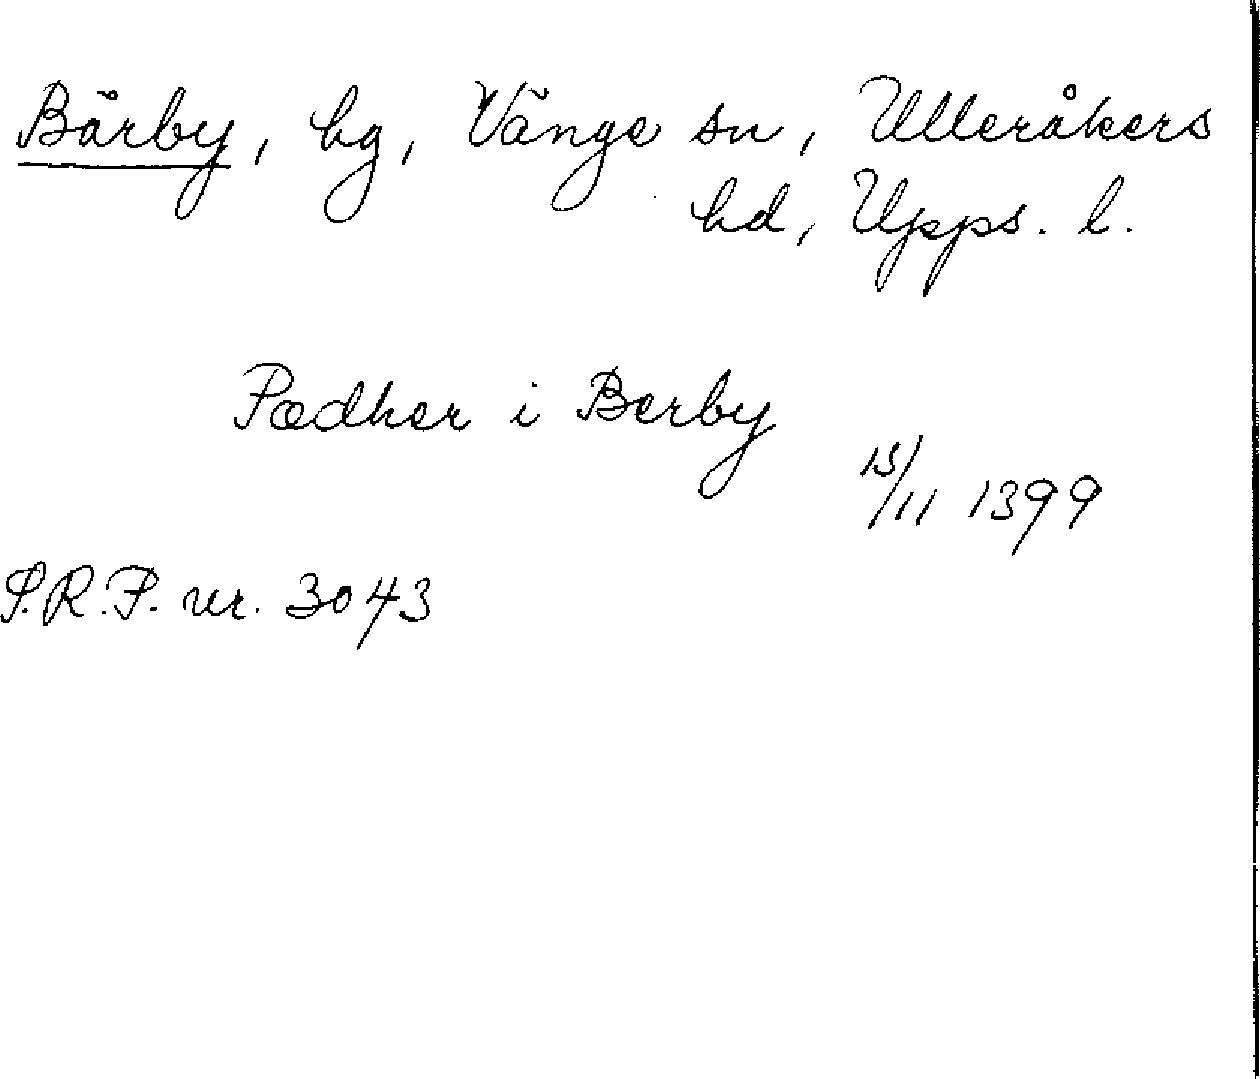 Bärby, hg, Vänge sn, Ulleråkers
hd, Upps. l.
Pædher i Berby
15/11 1399
S.R.P. nr. 3043